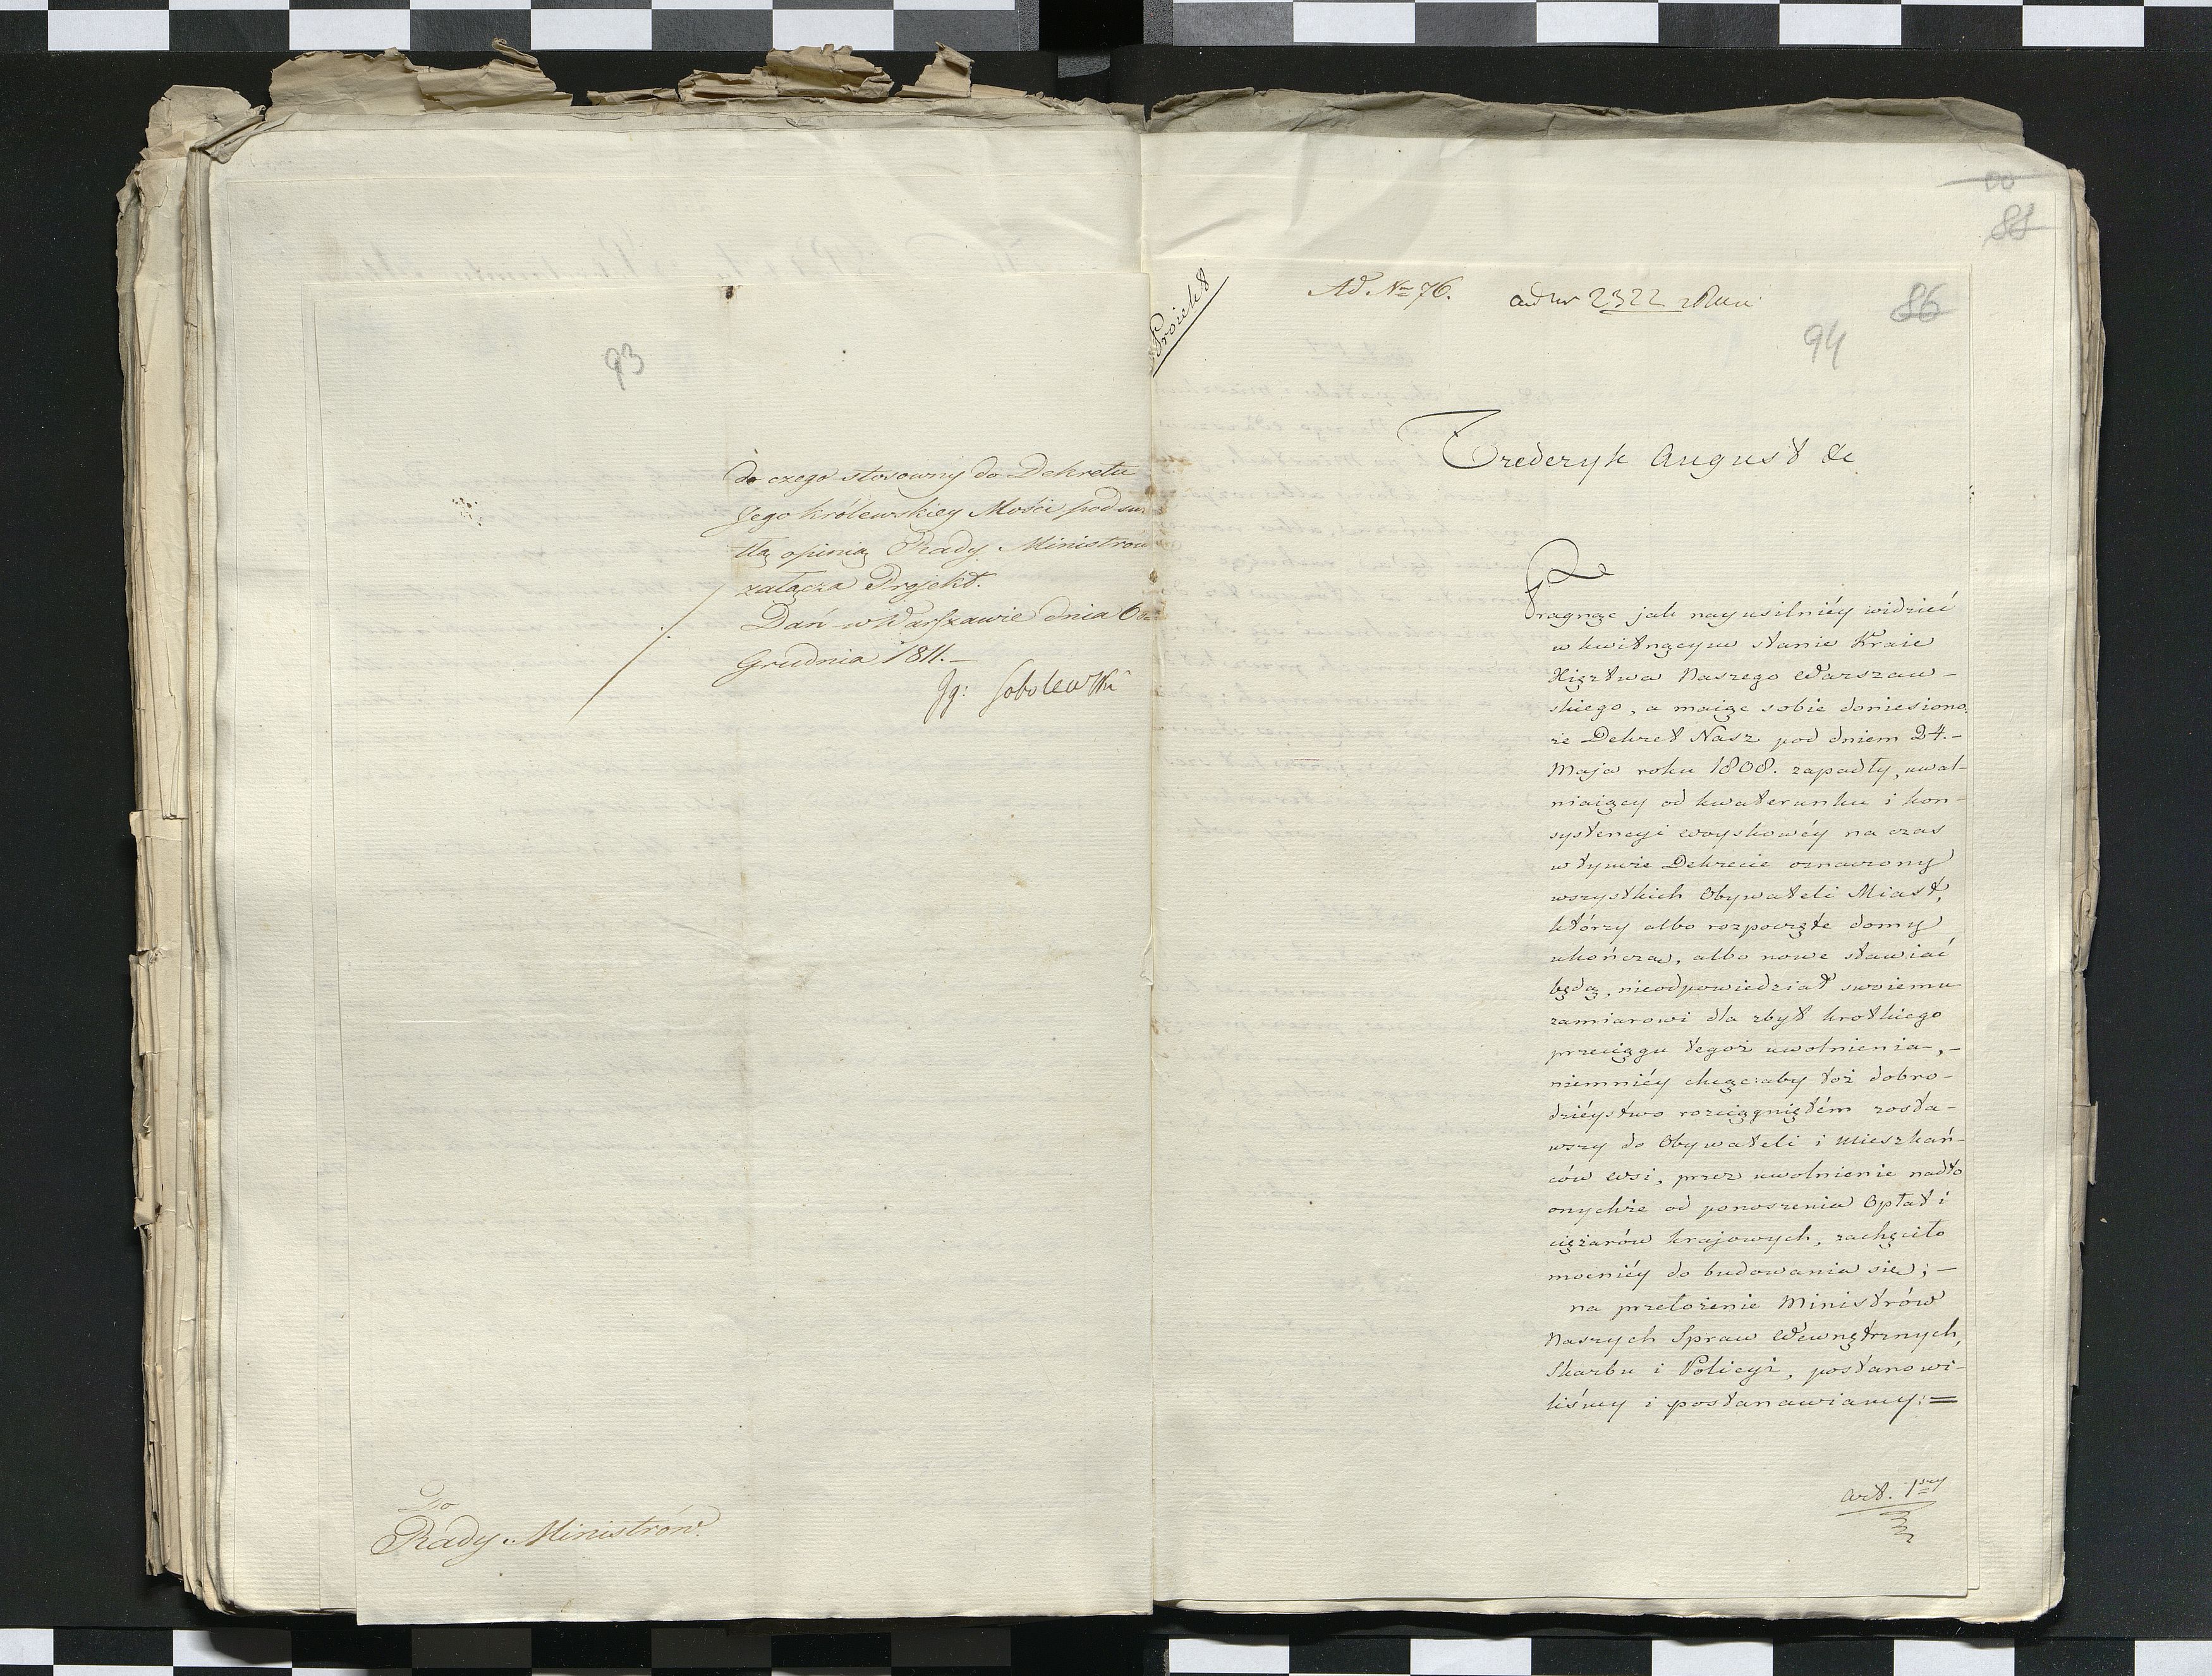 93
do czego stosowny do Dekretu
Jego Królewskiey Mości pod świa
tłą opinią Rady Ministrów
załącza Projekt.
Dań w Warszawie dnia 6
Grudnia 1811.—
Ig: Sobolewski
Do
Rady Ministrów.
88
Projekt
Ad Nro 76.
ad nr 2322
86
94
Frederyk August &c
Pragnąc jak nayusilniéy widzieć
w kwitnącym stanie Kraie
Xięztwa Naszego Warszaw-
skiego, a maiąc sobie doniesiono,
że Dekret Nasz pod dniem 24.-
Maja roku 1808. zapadły, uwal-
niaiący od kwaterunku i kon-
systencyi woyskowéy na czas
w tymże Dekrecie oznaczony
wszystkich Obywateli Miast,
którzy albo rozpoczęte domy
ukończą, albo nowe stawiać
będą, nieodpowiedział swoiemu
zamiarowi dla zbyt krotkiego
przeciągu tegoż uwolnienia,-
niemniéy chcąc: aby toż dobro-
dziéystwo rozciągniętém zosta-
wszy do Obywateli i Mieszkań-
ców wsi, przez uwolnienie nadto
onychże od ponoszenia Opłat i
ciężarów krajowych, zachęciło
mocniéy do budowania się;-
na przełożenie Ministrów
Naszych Spraw Wewnętrznych,
Skarbu i Policyi, postanowi-
liśmy i postanawiamy:=
art. 1szy